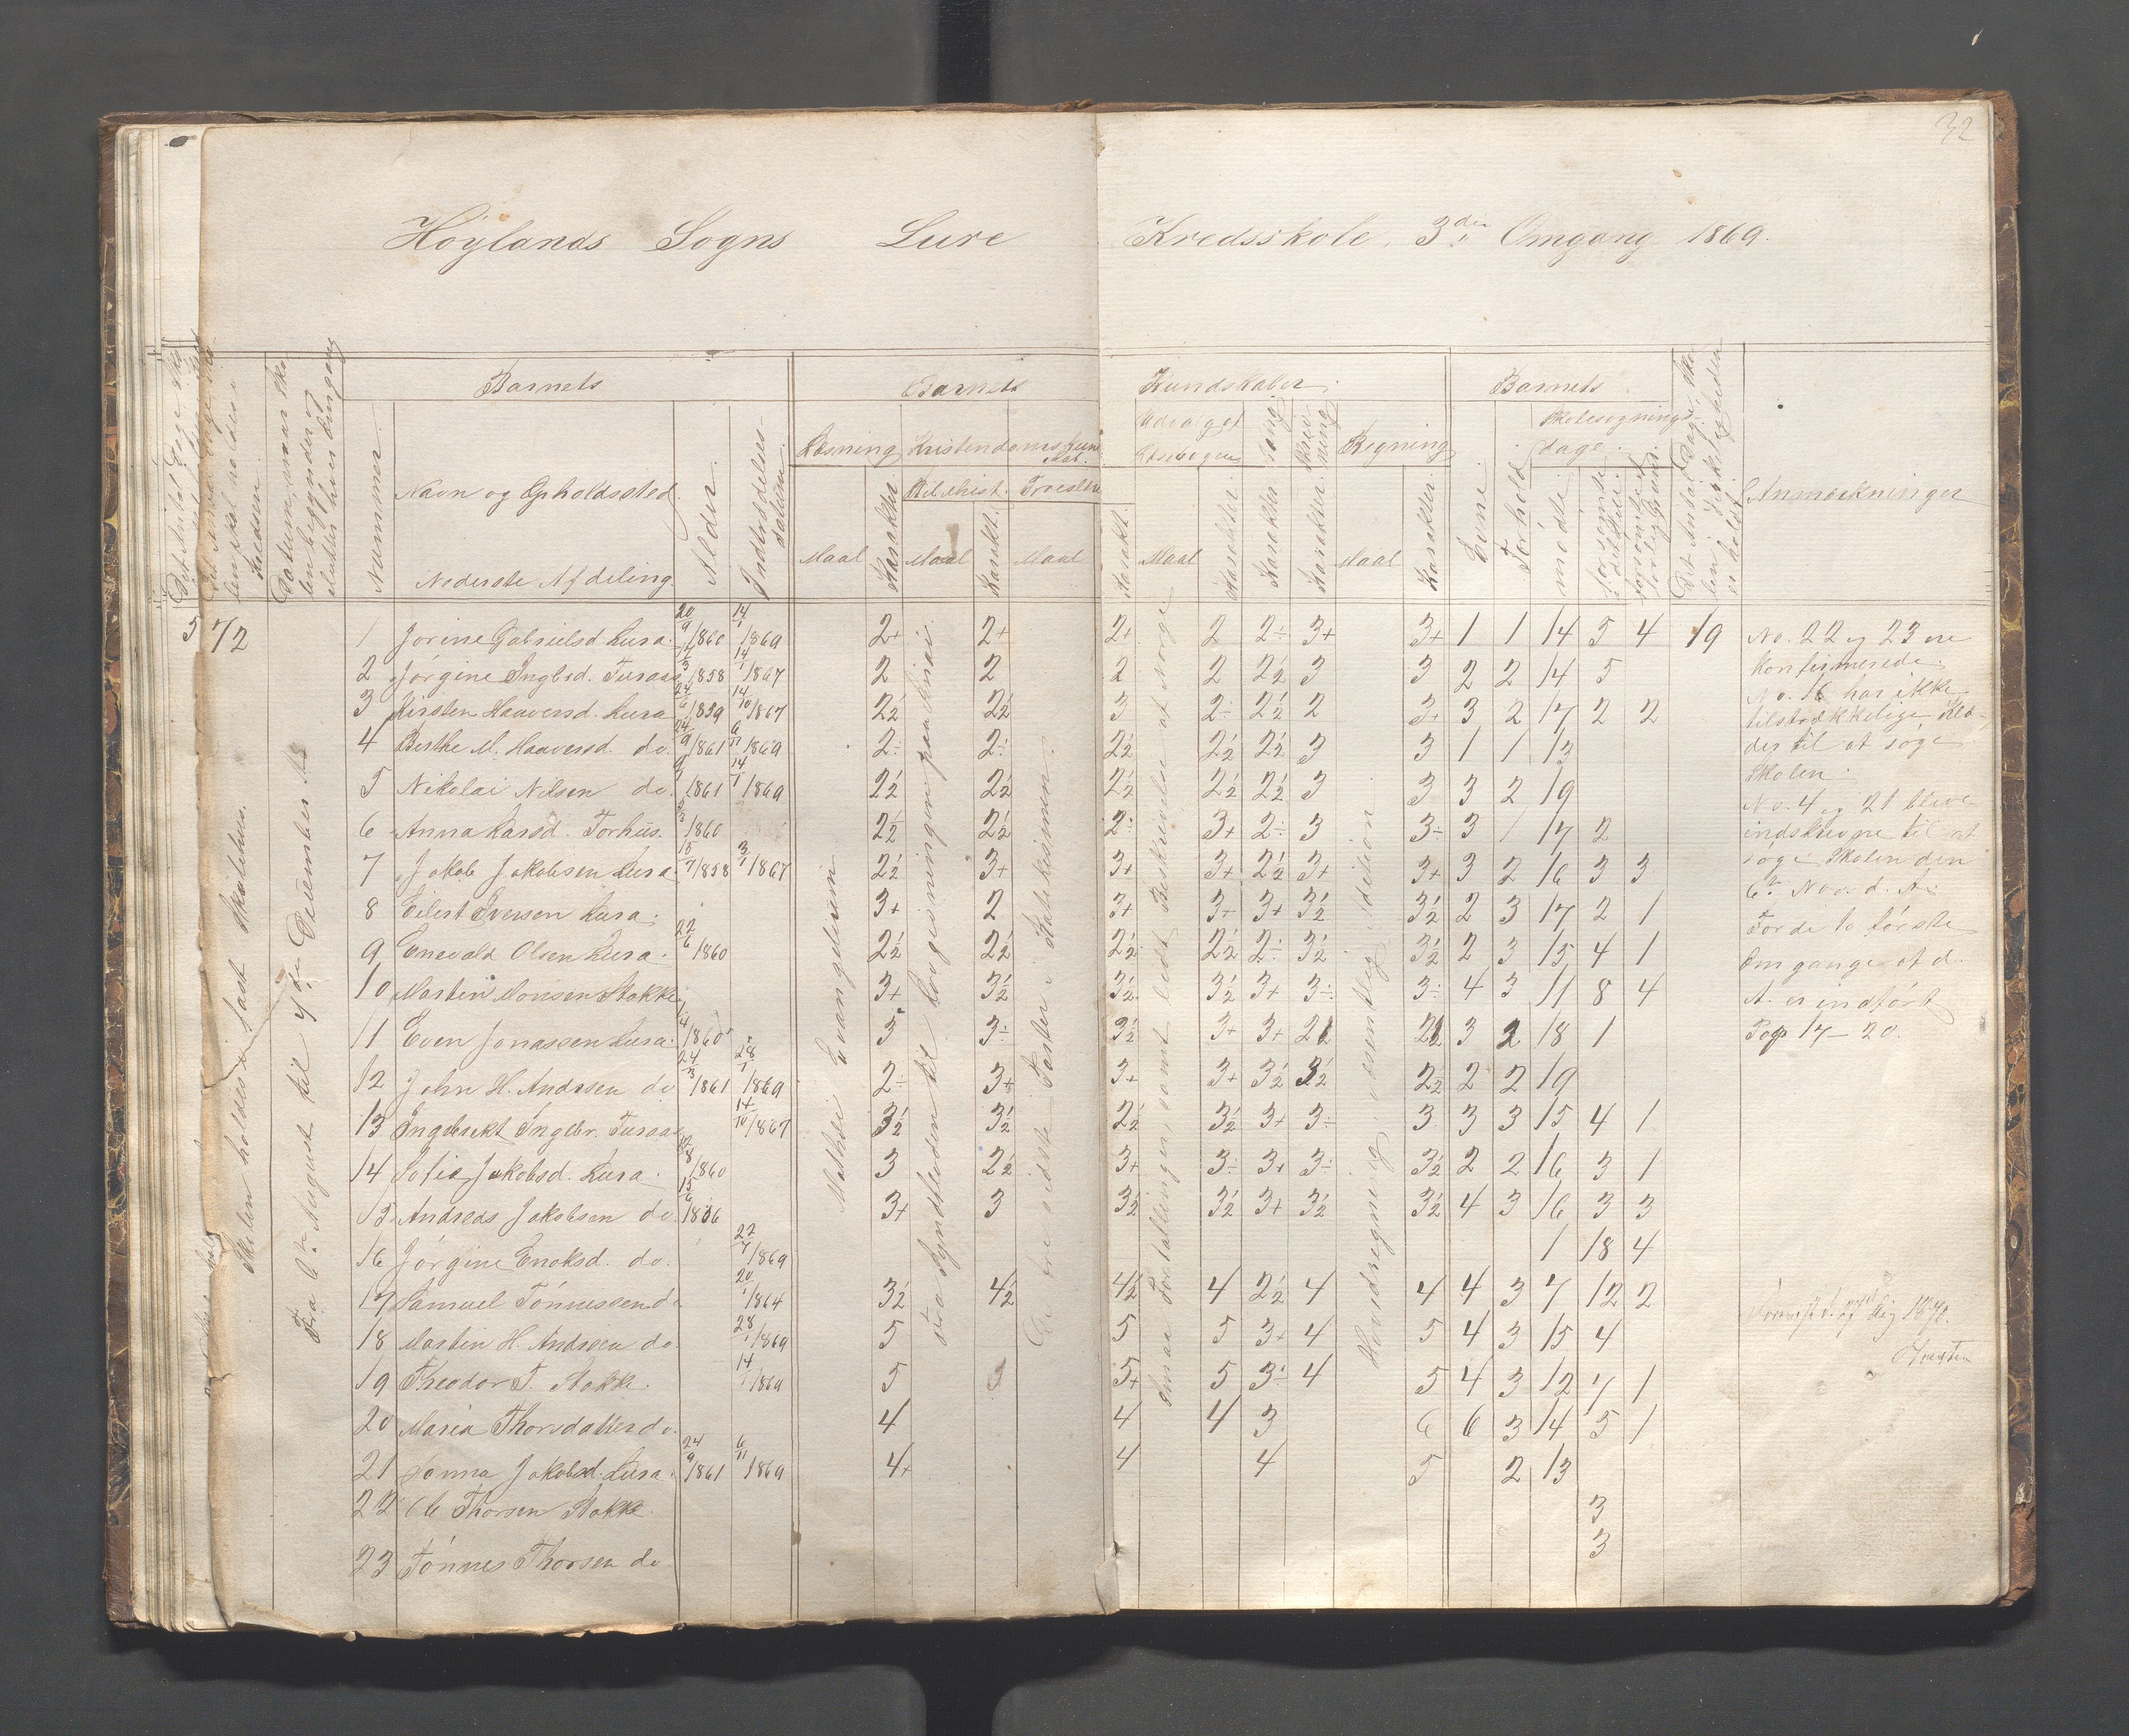 32
Höylands Sogns Lure Kredsskole. 3die Omgang 1869.
Barnets
Barnets Kundskaber.
Barnets
Skolesøgnings-
dage.
Nummer.
Navn og Opholdssted.
Nederste Afdeling.
Alder.
Indtrædelses-
datum.
Læsning
Kristendomskundskab.
Bibelhist.
Troeslære
Udvalget
Læsebogen
Sang.
Skriv-
ning
Regning
Maal Karakter Maal Karakt. Maal Karakt. Maal Karakter. Karakter Karakter. Maal Karakter.
Evne.
Forhold
mødte.
Anmærkninger
Datum, naar Sko-
len begynder og
slutter hver Omgang
Skolen holdes i fast Skolehus.
Fra 6te August til 4de December
Mathæi Evangelium
Fra Syndfloden til Lovgivningen paa Sinai.
De tre sidste Parter i Katekismen.
Smaa Fortællinger, samt lidt Beskrivelse af Norge
Hovedregning, væsentlig Addition
5 72
1 Jorine Gabrielsd Lura. 20/9 1860 14/1 1869 2+ 2+ 2+ 2 2÷ 3+ 3+ 1 1 14 5 4 19
2 Jörgine Ingbrd. Turaas 1858 14/1 1867 2 2 2 2 2½ 3 3 2 2 14 5
3 Kirsten Haaversd. Lura 24/6 1859 14/10 1867 2½ 2½ 3 2÷ 2½ 2 3+ 3 2 17 2 2
4 Berthe M. Haaversd. do. 24/9 1861 6/11 1869 2÷ 2÷ 2½ 2½ 2½ 3 3 1 1 13
5 Nikolai Nilsen do. 1861 14/1 1869 2½ 2½ 2½ 2½ 2½ 3 3 3 2 19
6 Anna Larsd. Forhus. 1860 2½ 2½ 2÷ 3+ 2÷ 3 3÷ 3 1 17 2
7 Jakob Jakobsen Lura. 15/7 1858 3/1 1867 2½ 3+ 3+ 3+ 2½ 3+ 3+ 3 2 16 3 3
8 Eilert Iversen Lura. 3+ 2 3+ 3+ 3+ 3½ 3½ 2 3 17 2 1
9 Enevald Olsen Lura. 22/6 1860 2½ 2½ 2½ 2½ 2÷ 3½ 3½ 2 3 15 4 1
10 Martin Monsen Stokke 3+ 3½ 3½ 3½ 3+ 3÷ 3÷ 4 3 11 8 4
11 Even Jonassen Lura. 1/4 1860 3 3÷ 3½ 3+ 3+ 3 2 18 1
12 John H. Andrsen do 24/3 1861 28/1 1869 2÷ 3+ 3+ 3+ 3½ 3½ 2½ 2 2 19
13 Ingebrekt Ingebr. Turaas 14/10 1867 3½ 3½ 2½ 3½ 3+ 3÷ 3 3 3 15 4 1
14 Sofie Jakobsd. Lura. 1860 3 2½ 3+ 3÷ 3+ 3÷ 3½ 2 2 16 3 1
15 Andreas Jakobsen do. 15/6 1856 3+ 3 3½ 3½ 3+ 3½ 3½ 4 3 16 3 3
16 Jörgine Enoksd. do. 22/7 1869 1 18 4
17 Samuel Tönnessen do 20/1 1864 3½ 4½ 4½ 4 2½ 4 4 4 3 7 12 2
18 Martin H. Andrsen do. 28/1 1869 5 5 5 3+ 4 5 4 3 15 4
19 Theodor T. Stokke. 14/1 1869 5 5+ 5 3÷ 4 5 4 3 12 7 1
20 Maria Thorsdatter do. 4 4 4 3 6 6 3 14 5 1
21 Jonna Jakobsd. Lura. 24/9 1861 6/11 1869 4+ 4 4 5 2 13
22 Ole Thorsen Stokke. 3
23 Tönnes Thorsen do 3
No. 22 og 23 ere
konfirmerede.
No. 16 har ikke
tilstrækkelige Klæ-
der til at søge
Skolen.
No. 4 og 21 bleve
indskrevne til at
søge Skolen den
6te Nov. d. A.
For de to første
Omgange af d.
A. er indført
Pag 17–20.